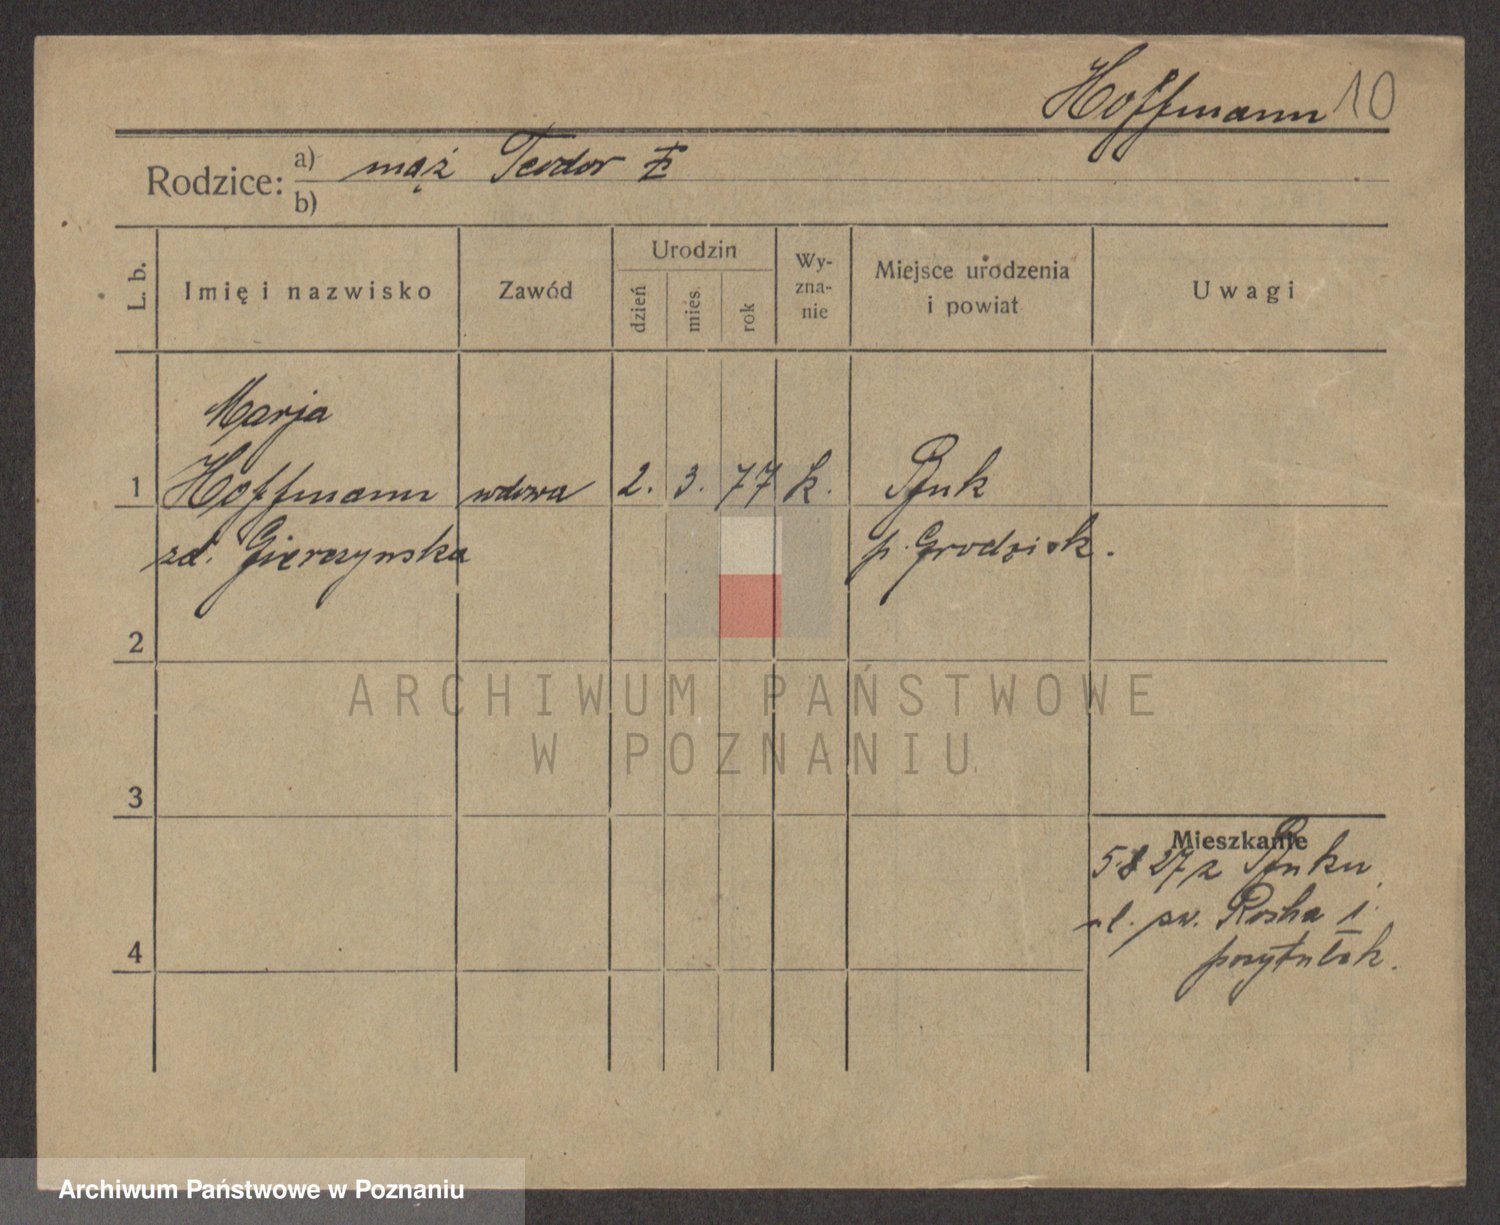 Hoffmann 10
Rodzice: a) mąż Teodor
b)
L. b.
Imię i nazwisko
Zawód
Urodzin
dzień
mies.
rok
Wy-
zna-
nie
Miejsce urodzenia
i powiat
Uwagi
Marja
1 Hoffmann wdowa 2. 3. 77 k. Buk
zd. Gierczynska p. Grodzisk.
2
ARCHIWUM PAŃSTWOWE
W POZNANIU
3
Mieszkanie
5.8 27 z Buku
ul. św. Rocha 1
4 przytułek.
Archiwum Państwowe w Poznaniu